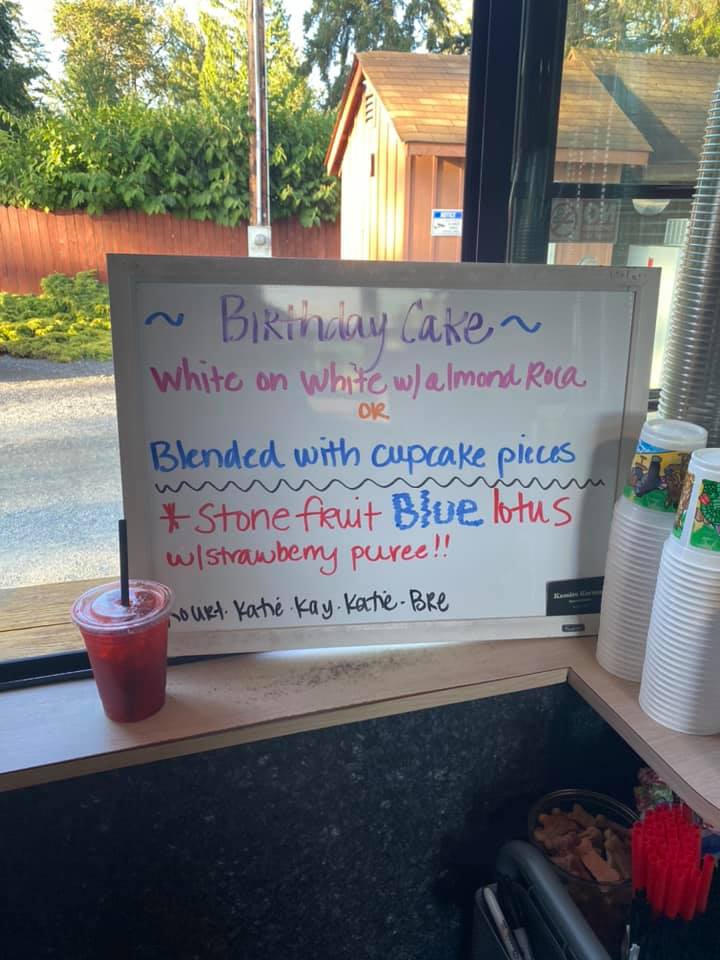 ~ Birthday Cake ~
White on White w/almond Roca
OR
Blended with cupcake pieces
* Stone fruit Blue lotus
w/strawberry puree!!
Kourt. Katie. Kay. Katie - Bre
NOTICE